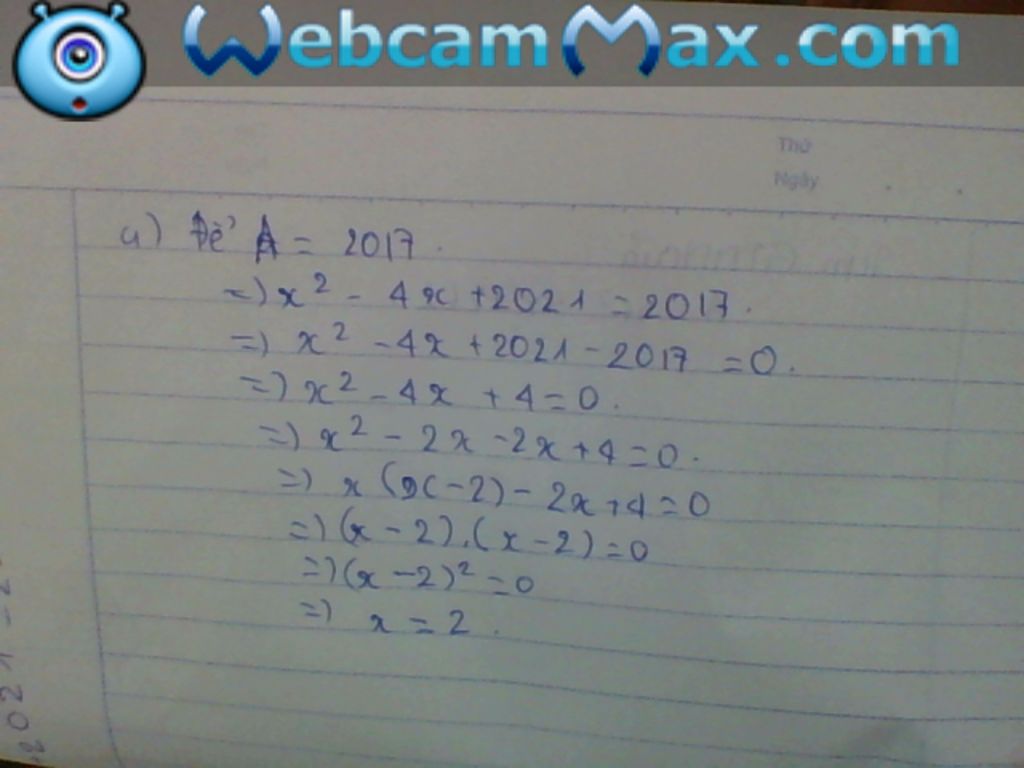 WebcamMax.com
Thứ
Ngày
a) Để A = 2017.
=) x² - 4x + 2021 = 2017.
=) x² - 4x + 2021 - 2017 = 0.
=) x² - 4x + 4 = 0.
=) x² - 2x - 2x + 4 = 0.
=) x (x - 2) - 2x + 4 = 0
=) (x - 2).(x - 2) = 0
=) (x - 2)² = 0
=) x = 2.